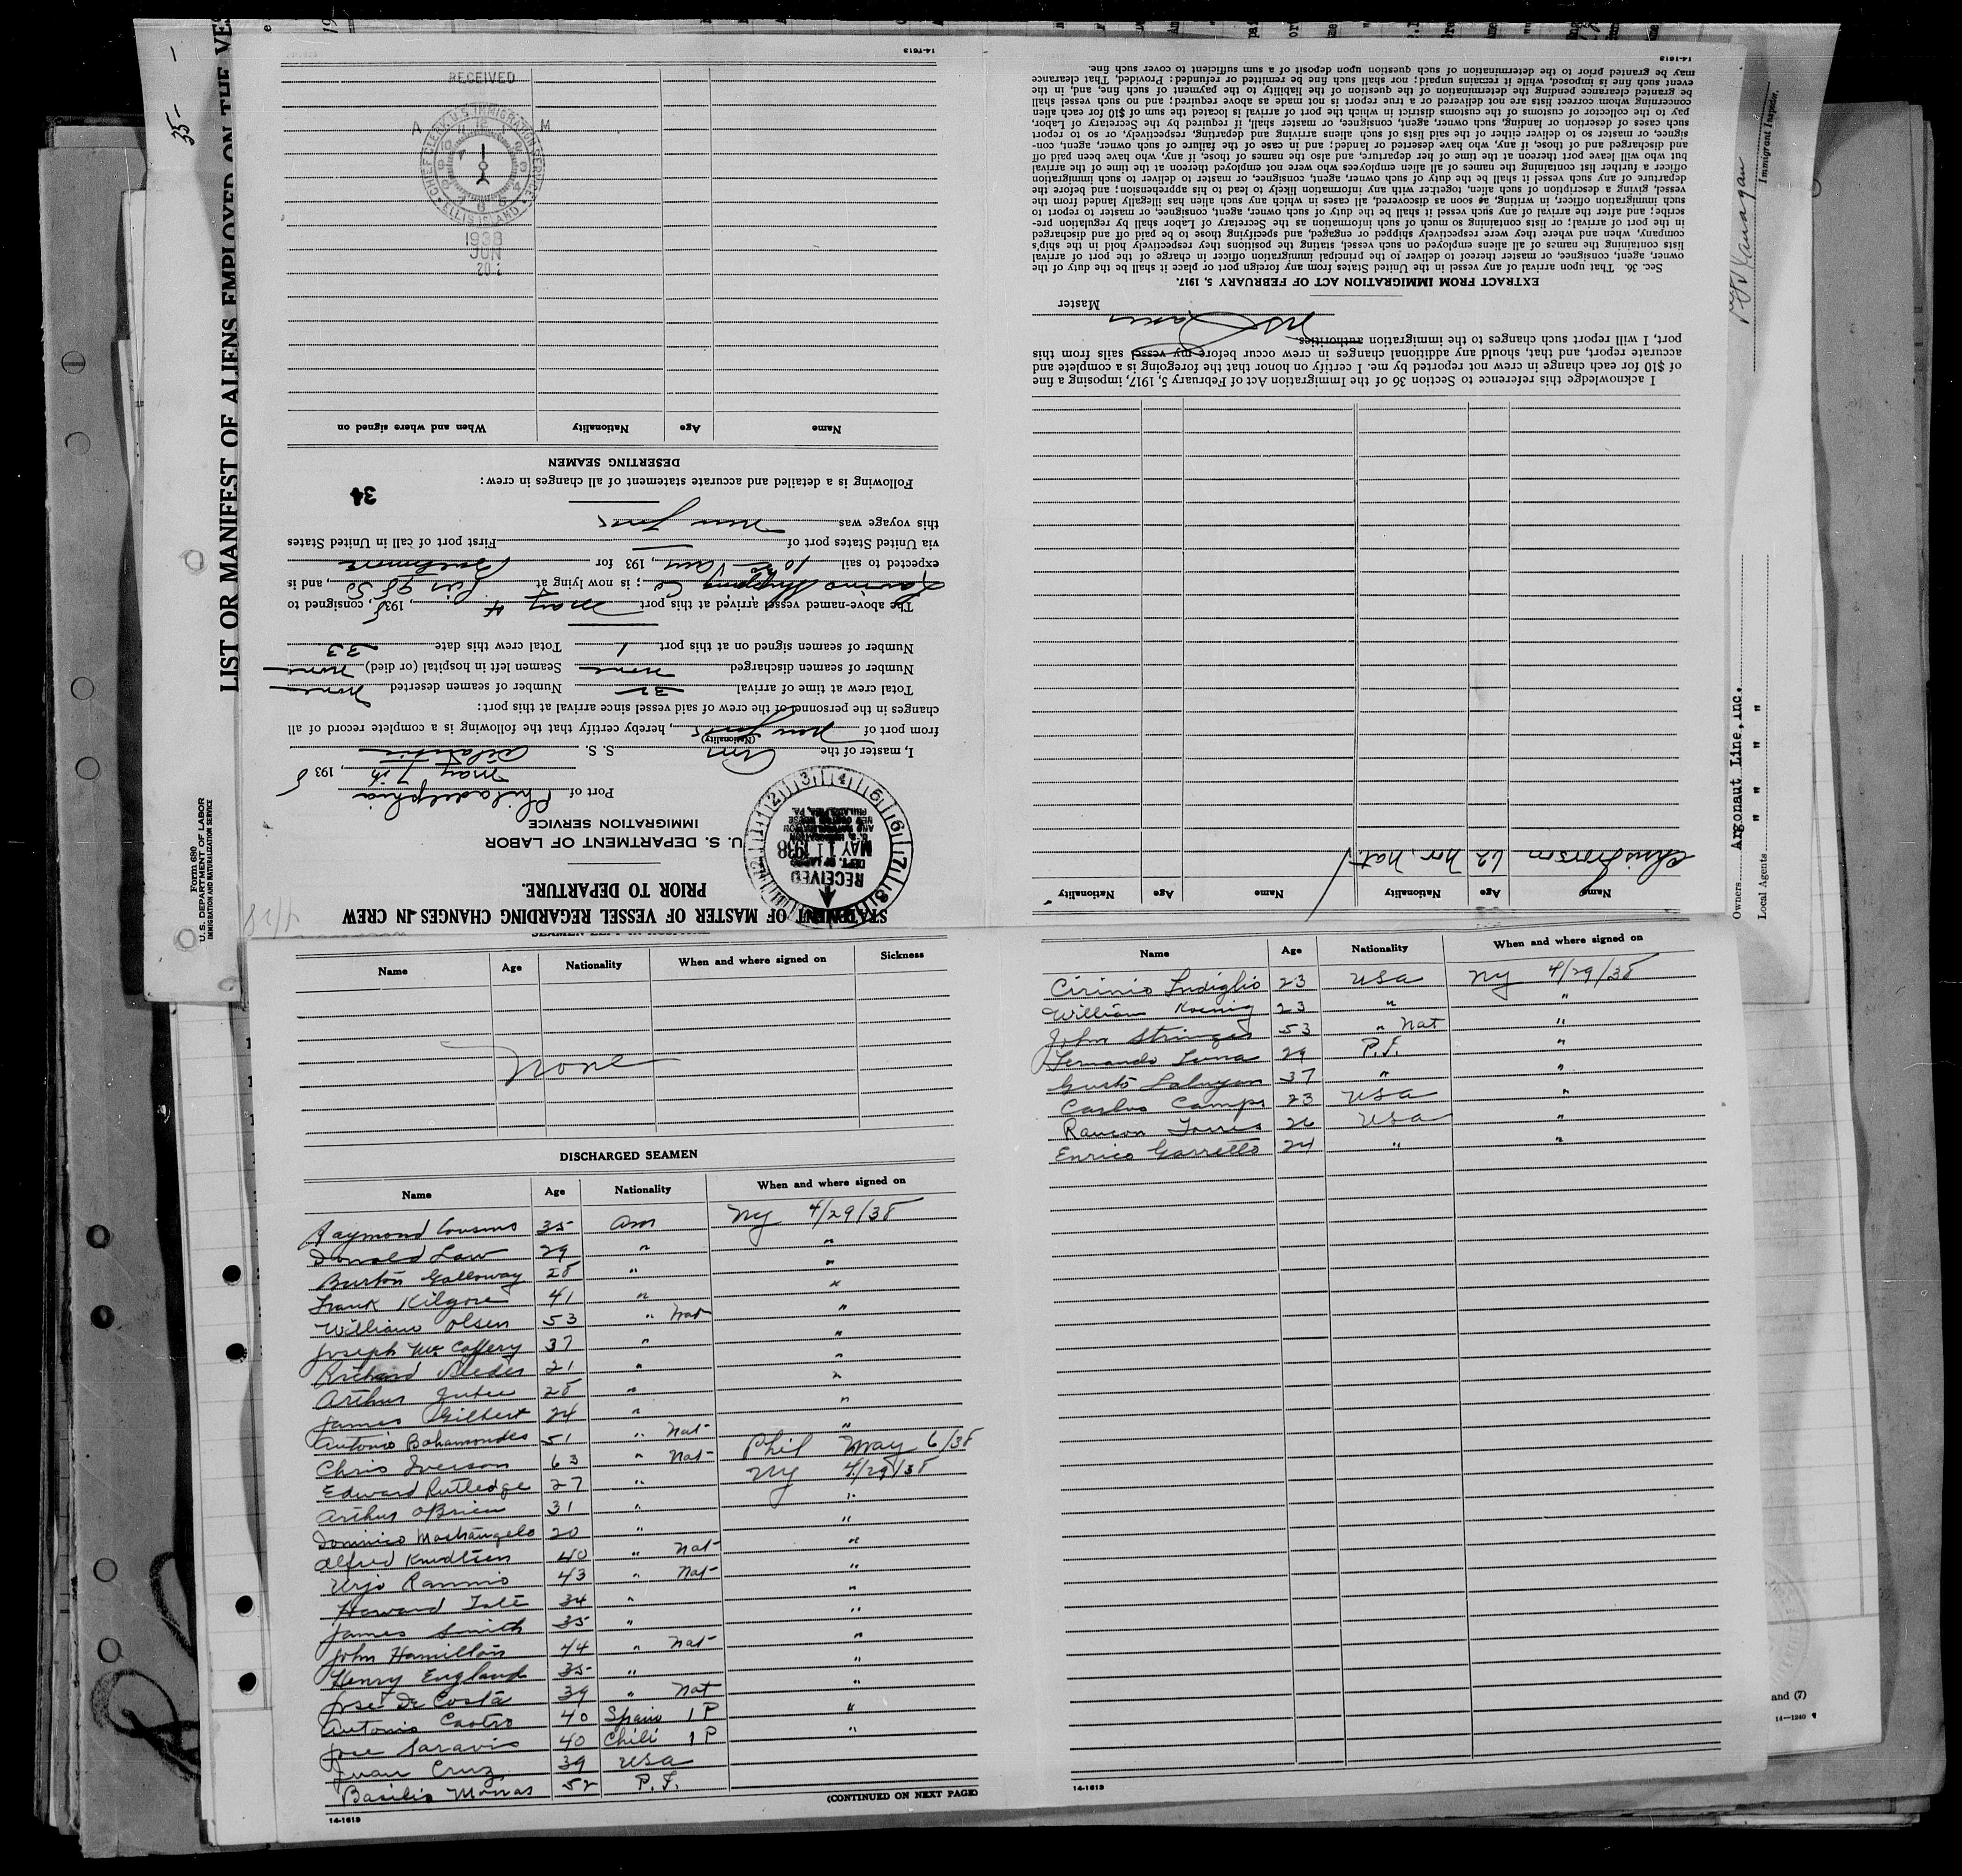 35-
LIST OR MANIFEST OF ALIENS EMPLOYED ON THE VES
Form 680
U. S. DEPARTMENT OF LABOR
IMMIGRATION AND NATURALIZATION SERVICE
STATEMENT OF MASTER OF VESSEL REGARDING CHANGES IN CREW
PRIOR TO DEPARTURE.
U. S. DEPARTMENT OF LABOR
IMMIGRATION SERVICE
RECEIVED
DEPT. OF LABOR
MAY 11 1938
NEW CUSTOM HOUSE
PHILADELPHIA, PA.
Port of Philadelphia
May 7th, 1938
I, master of the Am S. S.
(Nationality)
from port of New York, hereby certify that the following is a complete record of all
changes in the personnel of the crew of said vessel since arrival at this port:
Total crew at time of arrival 32 Number of seamen deserted None
Number of seamen discharged none Seamen left in hospital (or died) none
Number of seamen signed on at this port 1 Total crew this date 33
The above-named vessel arrived at this port May 4, 1938, consigned to
Lavino Shipping Co; is now lying at Pier 98 So, and is
expected to sail 10 am, 193 for Baltimore
via United States port of — First port of call in United States
this voyage was New York
34
Following is a detailed and accurate statement of all changes in crew:
DESERTING SEAMEN
Name Age Nationality When and where signed on
RECEIVED
CHIEF CLERK U.S. IMMIGRATION SERVICE
ELLIS ISLAND
A M
1938
JUN
20
14-1613
Name Age Nationality Name Age Nationality
Chris Iverson 62 Nor. Nat.
I acknowledge this reference to Section 36 of the Immigration Act of February 5, 1917, imposing a fine
of $10 for each change in crew not reported by me. I certify on honor that the foregoing is a complete and
accurate report, and that, should any additional changes in crew occur before my vessel sails from this
port, I will report such changes to the immigration authorities.
Master
EXTRACT FROM IMMIGRATION ACT OF FEBRUARY 5, 1917.
Sec. 36. That upon arrival of any vessel in the United States from any foreign port or place it shall be the duty of the
owner, agent, consignee, or master thereof to deliver to the principal immigration officer in charge of the port of arrival
lists containing the names of all aliens employed on such vessel, stating the positions they respectively hold in the ship's
company, when and where they were respectively shipped or engaged, and specifying those to be paid off and discharged
in the port of arrival; or lists containing so much of such information as the Secretary of Labor shall by regulation pre-
scribe; and after the arrival of any such vessel it shall be the duty of such owner, agent, consignee, or master to report to
such immigration officer, in writing, as soon as discovered, all cases in which any such alien has illegally landed from the
vessel, giving a description of such alien, together with any information likely to lead to his apprehension; and before the
departure of any such vessel it shall be the duty of such owner, agent, consignee, or master to deliver to such immigration
officer a further list containing the names of all alien employees who were not employed thereon at the time of the arrival
but who will leave port thereon at the time of her departure, and also the names of those, if any, who have been paid off
and discharged and of those, if any, who have deserted or landed; and in case of the failure of such owner, agent, con-
signee, or master so to deliver either of the said lists of such aliens arriving and departing, respectively, or so to report
such cases of desertion or landing, such owner, agent, consignee, or master, shall, if required by the Secretary of Labor,
pay to the collector of customs of the customs district in which the port of arrival is located the sum of $10 for each alien
concerning whom correct lists are not delivered or a true report is not made as above required; and no such vessel shall
be granted clearance pending the determination of the question of the liability to the payment of such fine, and, in the
event such fine is imposed, while it remains unpaid; nor shall such fine be remitted or refunded: Provided, That clearance
may be granted prior to the determination of such question upon deposit of a sum sufficient to cover such fine.
14-1613
Owners Argonaut Line, Inc.
Local Agents " " " "
Immigrant Inspector.
Name Age Nationality When and where signed on Sickness
None
DISCHARGED SEAMEN
Name Age Nationality When and where signed on
Raymond Cousins 35 Am NY 4/29/38
Donald Law 29 " "
Burton Galloway 28 " "
Frank Kilgore 41 " "
William Olsen 53 " Nat "
Joseph McCaffery 37 " "
Richard 21 " "
Arthur 28 " "
James Gilbert 24 " "
Antonio Bahamondes 51 " Nat "
Chris Iverson 63 " Nat Phil May 6/38
Edward Rutledge 27 " NY 4/29/38
Arthur OBrien 31 " "
Dominico Mastrangelo 20 " "
Alfred Knudtsen 40 " Nat "
Urjo Rannio 43 " Nat "
Howard Tate 34 " "
James Smith 35 " "
John Hamilton 44 " Nat "
Henry England 35 " "
Jose De Costa 39 " Nat "
Antonio Castro 40 Spain 1 P "
Jose Saravis 40 Chili 1 P "
Juan Cruz 39 USA
Basilio 52 P. I.
(CONTINUED ON NEXT PAGE)
14-1613
Name Age Nationality When and where signed on
Cirinio Indiglio 23 USA NY 4/29/38
William Koenig 23 " "
John Stringer 53 " Nat "
Fernando Luna 29 P. I. "
37 " "
Carlos Camps 23 USA "
Ramon Torres 26 USA "
Enrico Garretto 24 " "
14-1613
and (7)
14—1240